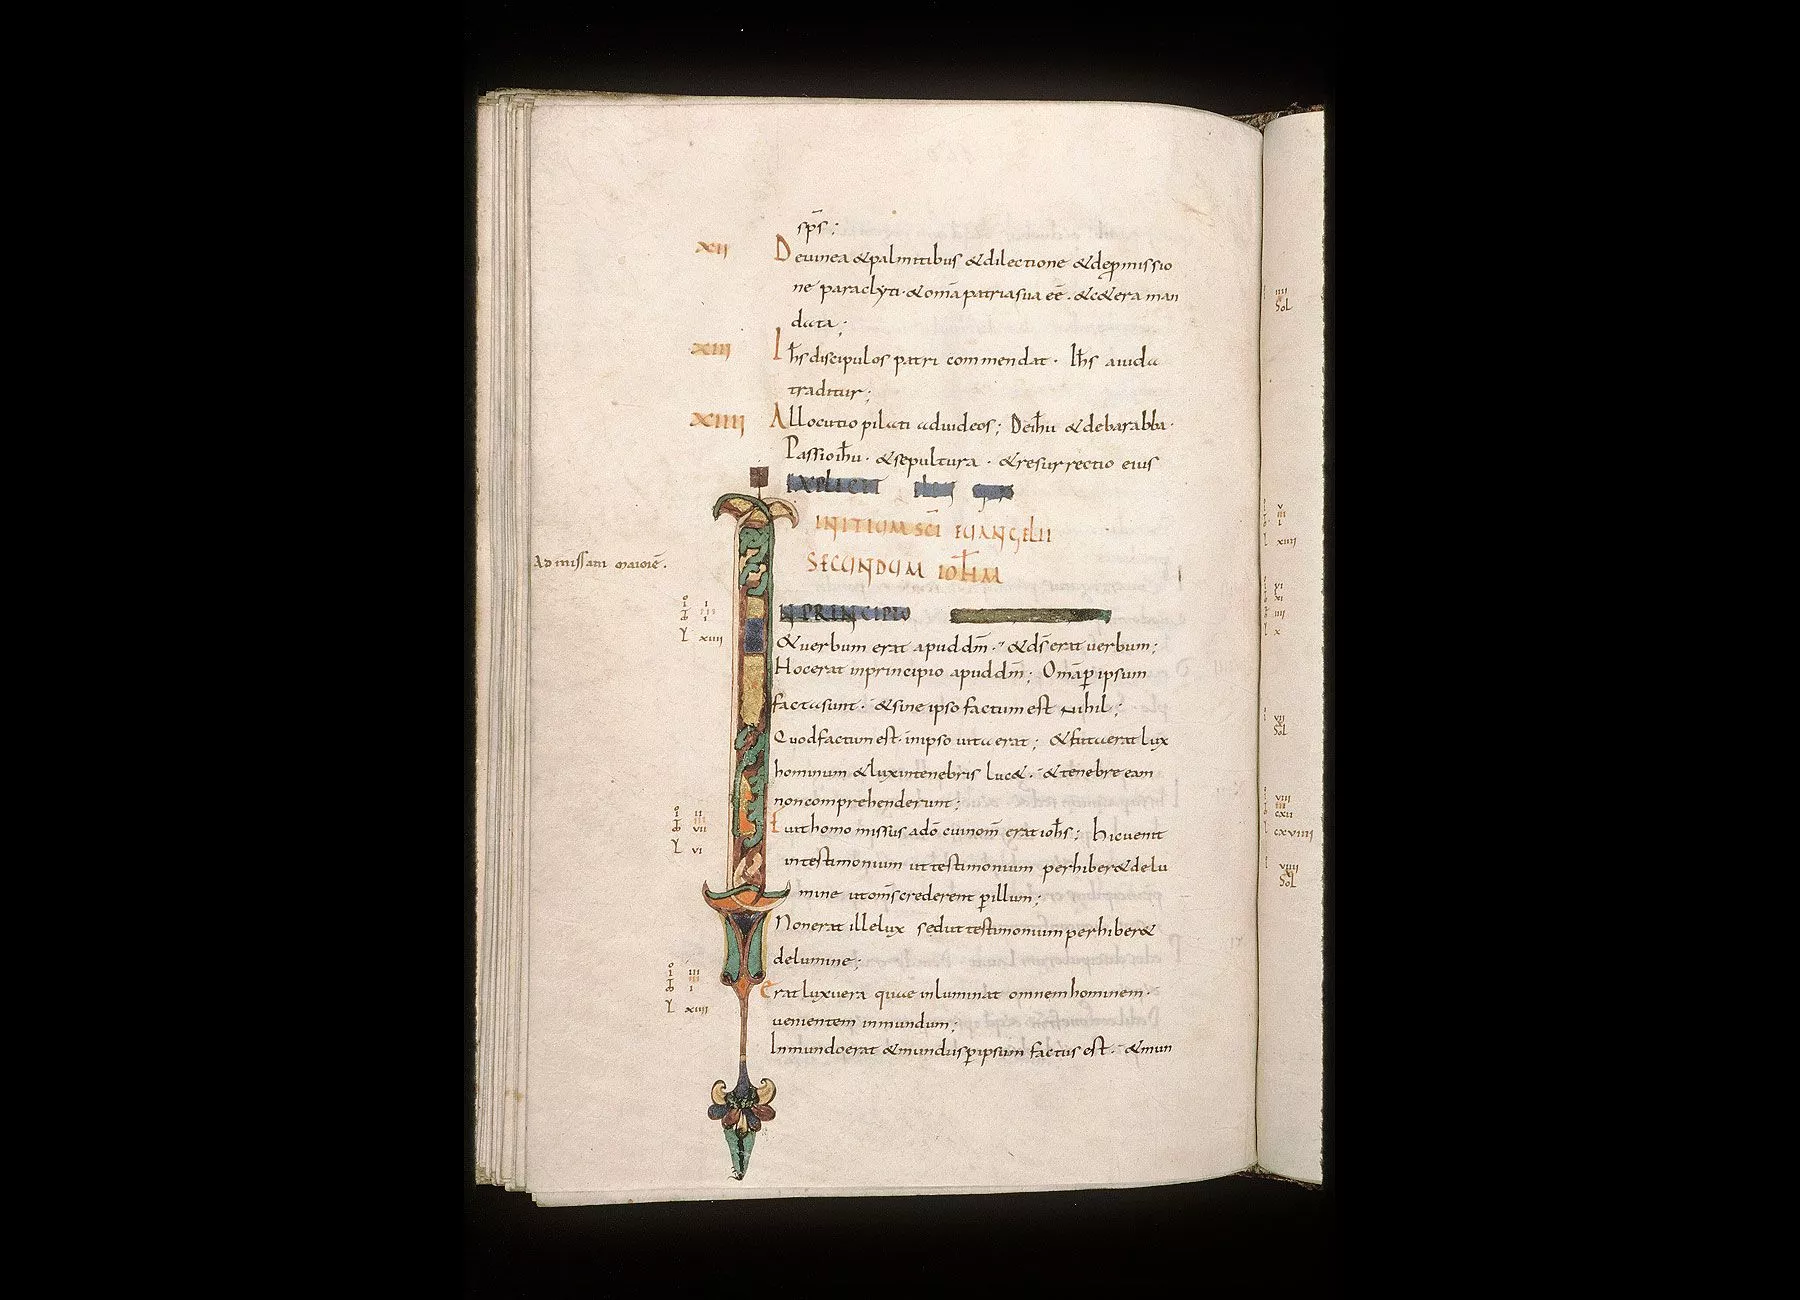 sp̄s;
XII Deuinea &palmitibus &dilectione &dep̲missio
ne paraclyti· &om̄apatriasua eē· &c&era man
data;
XIII Ih̄sdiscipulos patri commendat· Ih̄s aiuda
traditur;
XIIII Allocutio pilati adiudeos; Deih̄u &debarabba·
Passioih̄u· &sepultura· &resurrectio eius
EXPLICIT
INITIUM SC̄I EUANGELII
SECUNDUM IOH̄M
Ad missam maiorē.
IN PRINCIPIO
&uerbum erat apuddm̄· &ds̄ erat uerbum;
Hocerat inprincipio apuddm̄; Om̄ap̲ipsum
factasunt· &sine ipso factumest Nihil;
Quodfactumest· inipso uita erat; &uitaerat lux
hominum &luxintenebris luc&· &tenebre eam
noncomprehenderunt;
Fuithomo missus adō cuinom̄ erat ioh̄s; hicuenit
intestimonium uttestimonium perhiber&delu
mine utom̄s crederent p̲illum;
Nonerat illelux seduttestimonium perhiber&
delumine;
Erat luxuera quae inluminat omnemhominem·
uenientem inmundum;
Inmundoerat &mundusp̲ipsum factus est· &mun